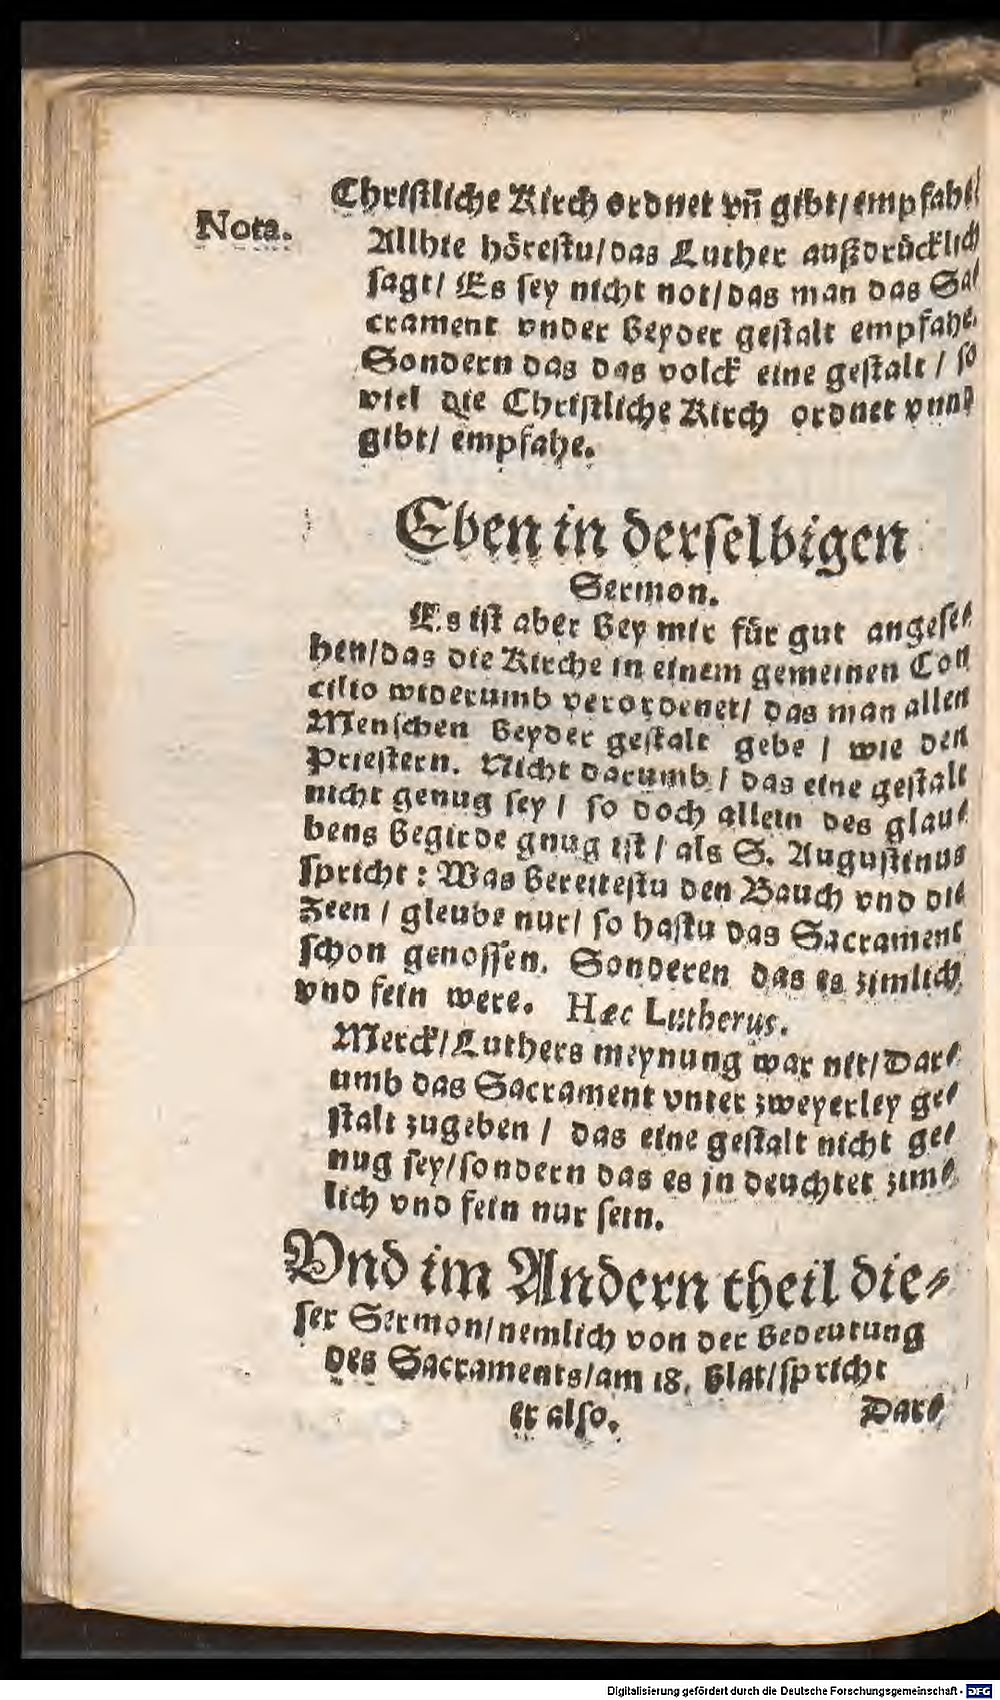 Christliche Kirch ordnet vñ gibt/empfah⸗
Nota.
Allhie hörestu/das Luther außdrücklich
sagt/ Es sey nicht not/das man das Sa⸗
crament vnder beyder gestalt empfahe.
Sondern das das volck eine gestalt / so
viel die Christliche Kirch ordnet vnnd
gibt/ empfahe.
Eben in derselbigen
Sermon.
Es ist aber bey mir für gut angese⸗
hen/das die Kirche in einem gemeinen Con
cilio widerumb verordenet/ das man allen
Menschen beyder gestalt gebe / wie den
Priestern. Nicht darumb / das eine gestalt
nicht genug sey / so doch allein des glau⸗
bens begirde gnug ist / als S. Augustinus
spricht : Was bereitestu den Bauch vnd die
Zeen / gleube nur/ so hastu das Sacrament
schon genossen. Sonderen das es zimlich
vnd fein were. Hæc Lutherus.
Merck/Luthers meynung war nit/Dar⸗
umb das Sacrament vnter zweyerley ge⸗
stalt zugeben / das eine gestalt nicht ge⸗
nug sey/sondern das es jn deuchtet zim⸗
lich vnd fein nur sein.
Vnd im Andern theil die⸗
ser Sermon/nemlich von der bedeutung
des Sacraments/am 18. blat/spricht
er also.
Dar⸗
Digitalisierung gefördert durch die Deutsche Forschungsgemeinschaft - DFG